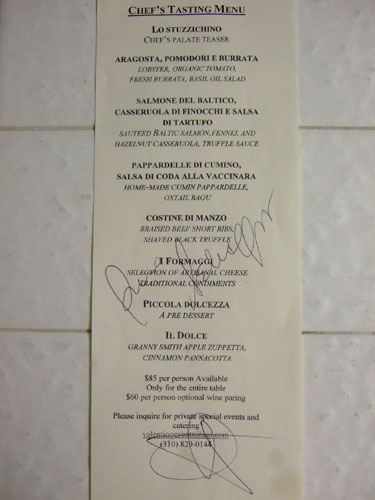 CHEF'S TASTING MENU
LO STUZZICHINO
CHEF'S PALATE TEASER
ARAGOSTA, POMODORI E BURRATA
LOBSTER, ORGANIC TOMATO,
FRESH BURRATA, BASIL OIL SALAD
SALMONE DEL BALTICO,
CASSERUOLA DI FINOCCHI E SALSA
DI TARTUFO
SAUTEED BALTIC SALMON, FENNEL AND
HAZELNUT CASSERUOLA, TRUFFLE SAUCE
PAPPARDELLE DI CUMINO,
SALSA DI CODA ALLA VACCINARA
HOME-MADE CUMIN PAPPARDELLE,
OXTAIL RAGU
COSTINE DI MANZO
BRAISED BEEF SHORT RIBS,
SHAVED BLACK TRUFFLE
I FORMAGGI
SELECTION OF ARTISANAL CHEESE
TRADITIONAL CONDIMENTS
PICCOLA DOLCEZZA
A PRE DESSERT
IL DOLCE
GRANNY SMITH APPLE ZUPPETTA,
CINNAMON PANNACOTTA
$85 per person Available
Only for the entire table
$60 per person optional wine paring
Please inquire for private special events and
catering
(310) 829-0144